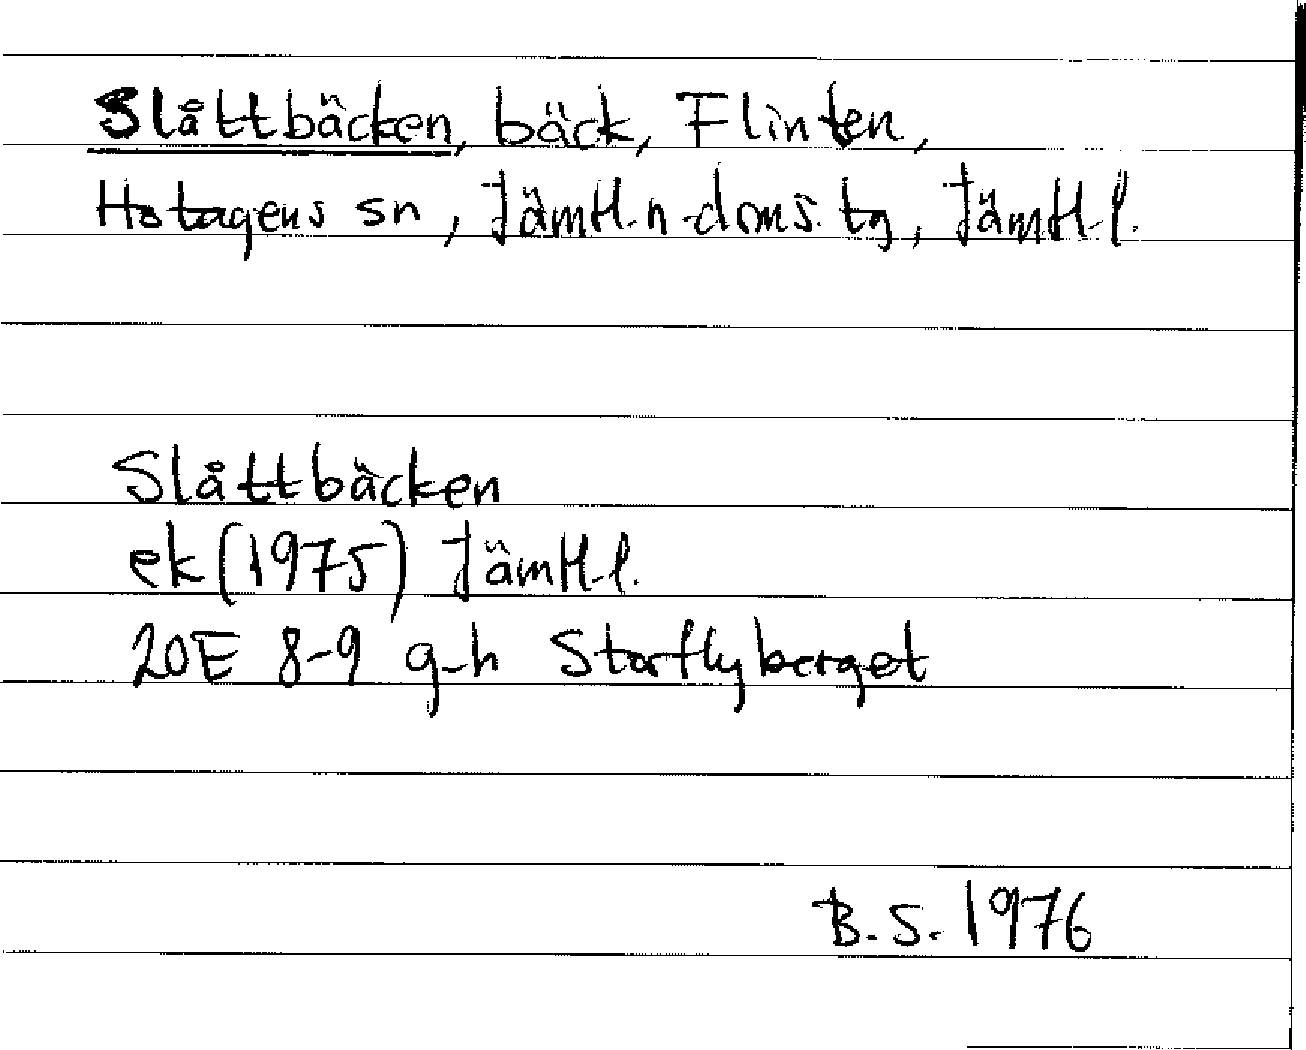 Slåttbäcken, bäck, Flinten,
Hotagens sn, Jämtl. n. doms. tg, Jämtl. l.
Slåttbäcken
ek (1975) Jämtl. l.
20E 8-9 g-h Storflyberget
B. S. 1976